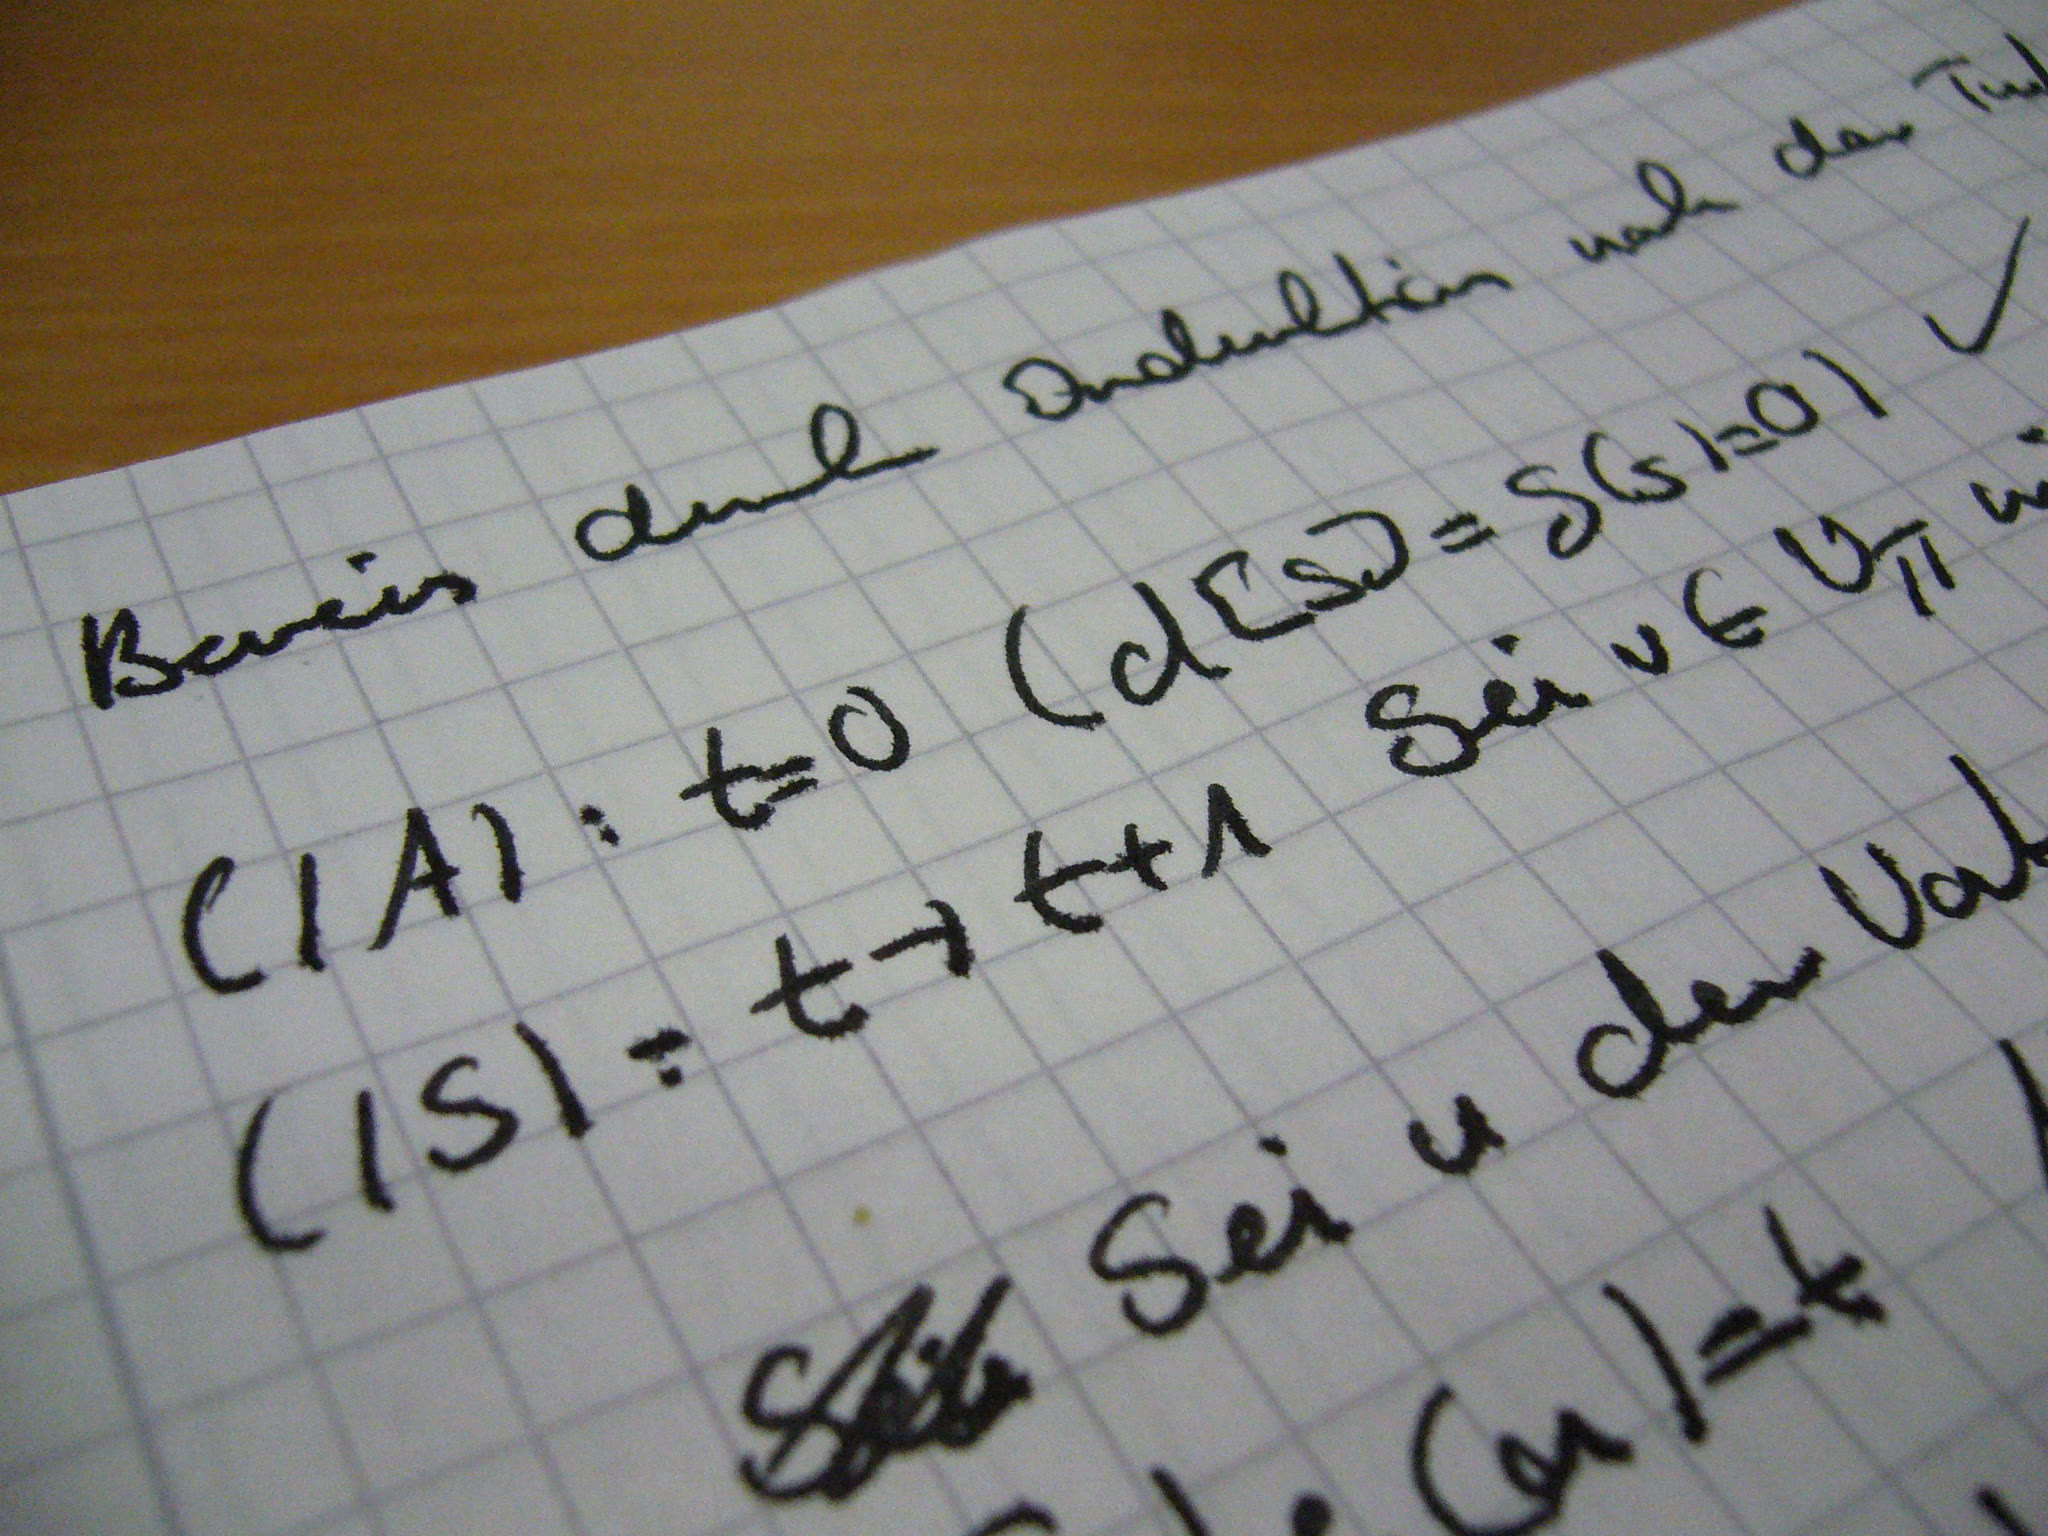 Beweis durch Induktion nach der
(IA): t=0 (d[s] = δ(s)=0) ✓
(IS): t→t+1 Sei v ∈ V_π
Sei u der
(u)=t